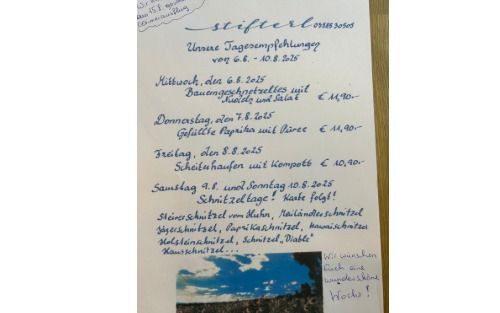 am 15.8.
stifterl
Unsere Tagesempfehlungen
von 6.8. - 10.8.2025
Mittwoch, den 6.8.2025
Bauerngeschnetzeltes mit
Nudeln und Salat € 11,90.-
Donnerstag, den 7.8.2025
Gefüllte Paprika mit Püree € 11,90.-
Freitag, den 8.8.2025
Scheiterhaufen mit Kompott € 10,90.-
Samstag 9.8. und Sonntag 10.8.2025
Schnitzeltage! Karte folgt!
Steirerschnitzel vom Huhn, Mailänderschnitzel
Jägerschnitzel, Paprikaschnitzel, Hawaiischnitzel
Holsteinschnitzel, Schnitzel „Diable"
Hausschnitzel...
Wir wünschen
Euch eine
wunderschöne
Woche!